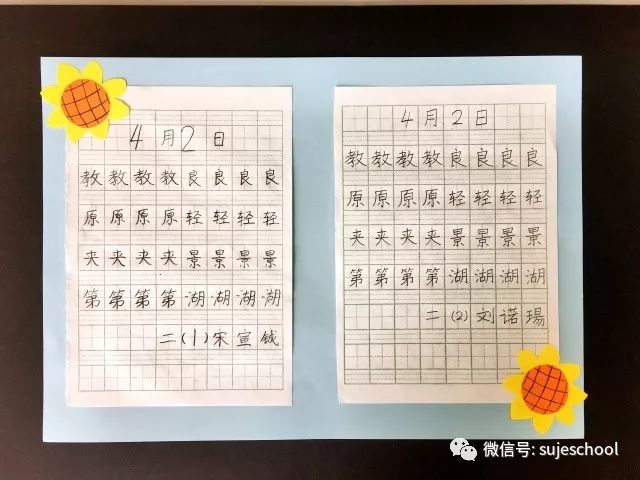 4月2日
教教教教良良良良
原原原原轻轻轻轻
夹夹夹夹景景景景
第第第第湖湖湖湖
二(1)宋宣钺
4月2日
教教教教良良良良
原原原原轻轻轻轻
夹夹夹夹景景景景
第第第第湖湖湖湖
二(2)刘诺瑒
微信号: sujeschool